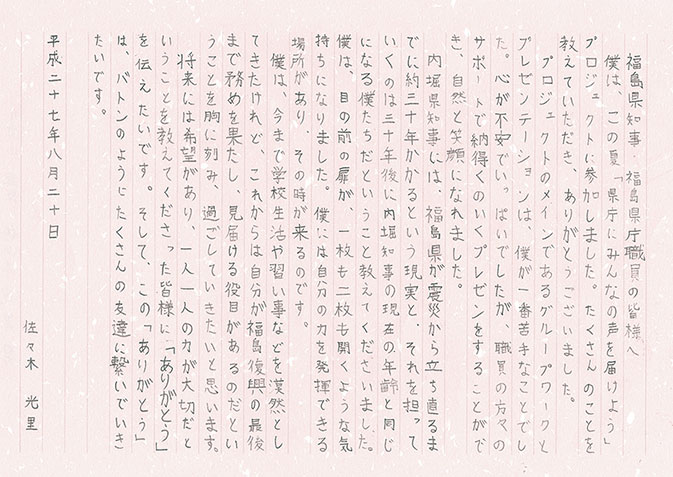 福島県知事・福島県庁職員の皆様へ
僕は、この夏「県庁にみんなの声を届けよう」
プロジェクトに参加しました。たくさんのことを
教えていただき、ありがとうございました。
プロジェクトのメインであるグループワークと
プレゼンテーションは、僕が一番苦手なことでし
た。心が不安でいっぱいでしたが、職員の方々の
サポートで納得くのいくプレゼンをすることがで
き、自然と笑顔になれました。
内堀県知事には、福島県が震災から立ち直るま
でに約三十年かかるという現実と、それを担って
いくのは三十年後に内堀知事の現在の年齢と同じ
になる僕たちだということ教えてくださいました。
僕は、目の前の扉が、一枚も二枚も開くような気
持ちになりました。僕には自分の力を発揮できる
場所があり、その時が来るのです。
僕は、今まで学校生活や習い事などを漠然とし
てきたけれど、これからは自分が福島復興の最後
まで務めを果たし、見届ける役目があるのだとい
うことを胸に刻み、過ごしていきたいと思います。
将来には希望があり、一人一人の力が大切だと
いうことを教えてくださった皆様に「ありがとう」
を伝えたいです。そして、この「ありがとう」
は、バトンのようにたくさんの友達に繋いでいき
たいです。
平成二十七年八月二十日
佐々木 光里